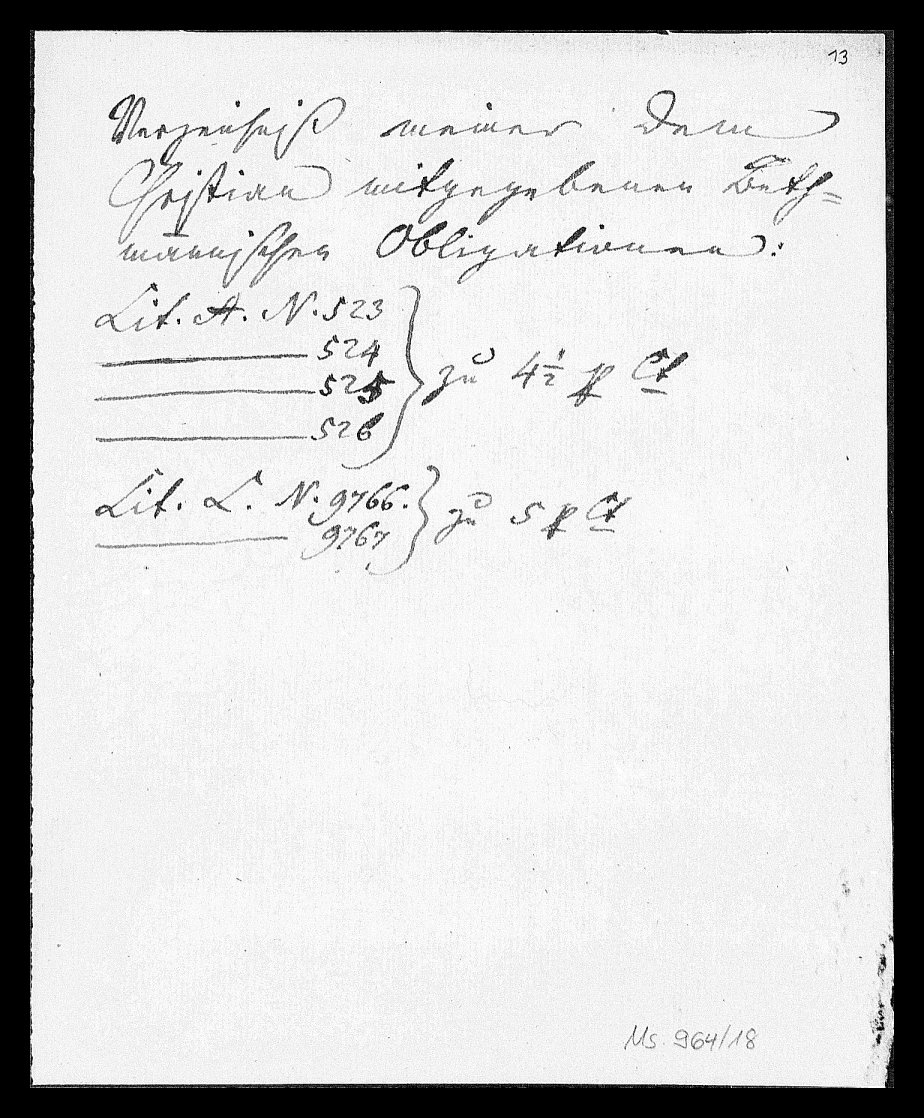 13
Verzeichniß meiner dem
Christian mitgegebenen Beth=
männischen Obligationen:
Lit. A. N. 523
524
525
526
zu 4½ p Ct
Lit. L. N. 9766.
9767
zu 5 p Ct
Ms. 964/18